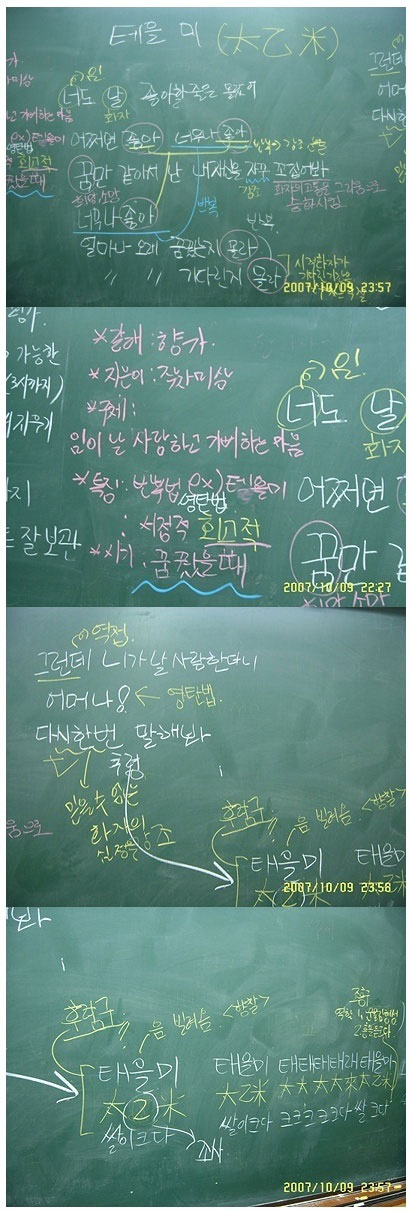 테을 미 (太乙米)
임
너도 날 좋아할 줄은 몰랐어
화자
어쩌면 좋아 너무나 좋아
꿈만 같아서 난 내 자신을 자꾸 꼬집어봐
강조
너무나 좋아
반복
반복
얼마나 오래 꿈꿨는지 몰라
〃 〃 기다린지 몰라
영탄법
회고적
꿨을 때
2007/10/09 23:57
*갈래 : 향가.
*지은이 : 작자미상
*주제 :
임이 날 사랑하고 기뻐하는 마음
*특징 : 반복법 ex) 테을미
영탄법
: 서정적 회고적
*시기 : 꿈꿨을 때
가능한
잘 보관
임.
너도 날
화자
어쩌면
꿈만
2007/10/09 22:27
역접.
그런데 니가 날 사랑한다니
어머나! ← 영탄법.
다시 한번 말해봐
믿을 수 없는
화자의
심정을 강조
후렴구
음 빌려옴. <향찰>
태을미 태을미
太乙米
2007/10/09 23:58
후렴구
음 빌려옴. <향찰>
태을미 태을미 태태태태태을미
太乙米 太乙米 太太太太太乙米
쌀이크다 쌀이크다 크크크크크다 쌀 크다
조사
2007/10/09 23:57